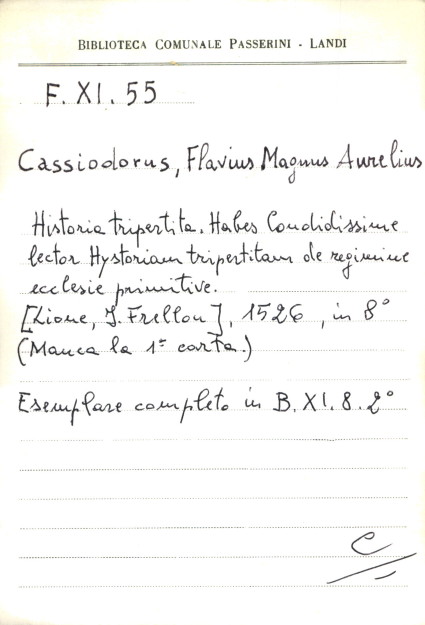 BIBLIOTECA COMUNALE PASSERINI - LANDI
F. XI. 55
Cassiodorus, Flavius Magnus Aurelius
Historia tripertita. Habes Condidissime
lector Hystoriam tripertitam de regimine
ecclesie primitive.
[Lione, J. Frellon], 1526, in 8°
(Manca la 1ª carta.)
Esemplare completo in B. XI. 8. 2°
C